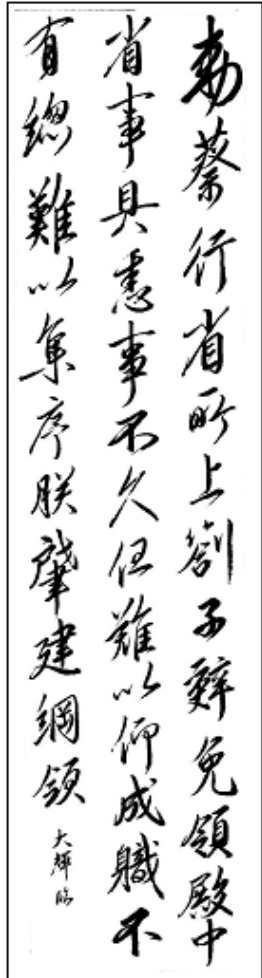 勅蔡行省所上劄子辭免領殿中
省事具悉事不久任難以仰成職不
有總難以集序朕肇建綱領
大輝臨